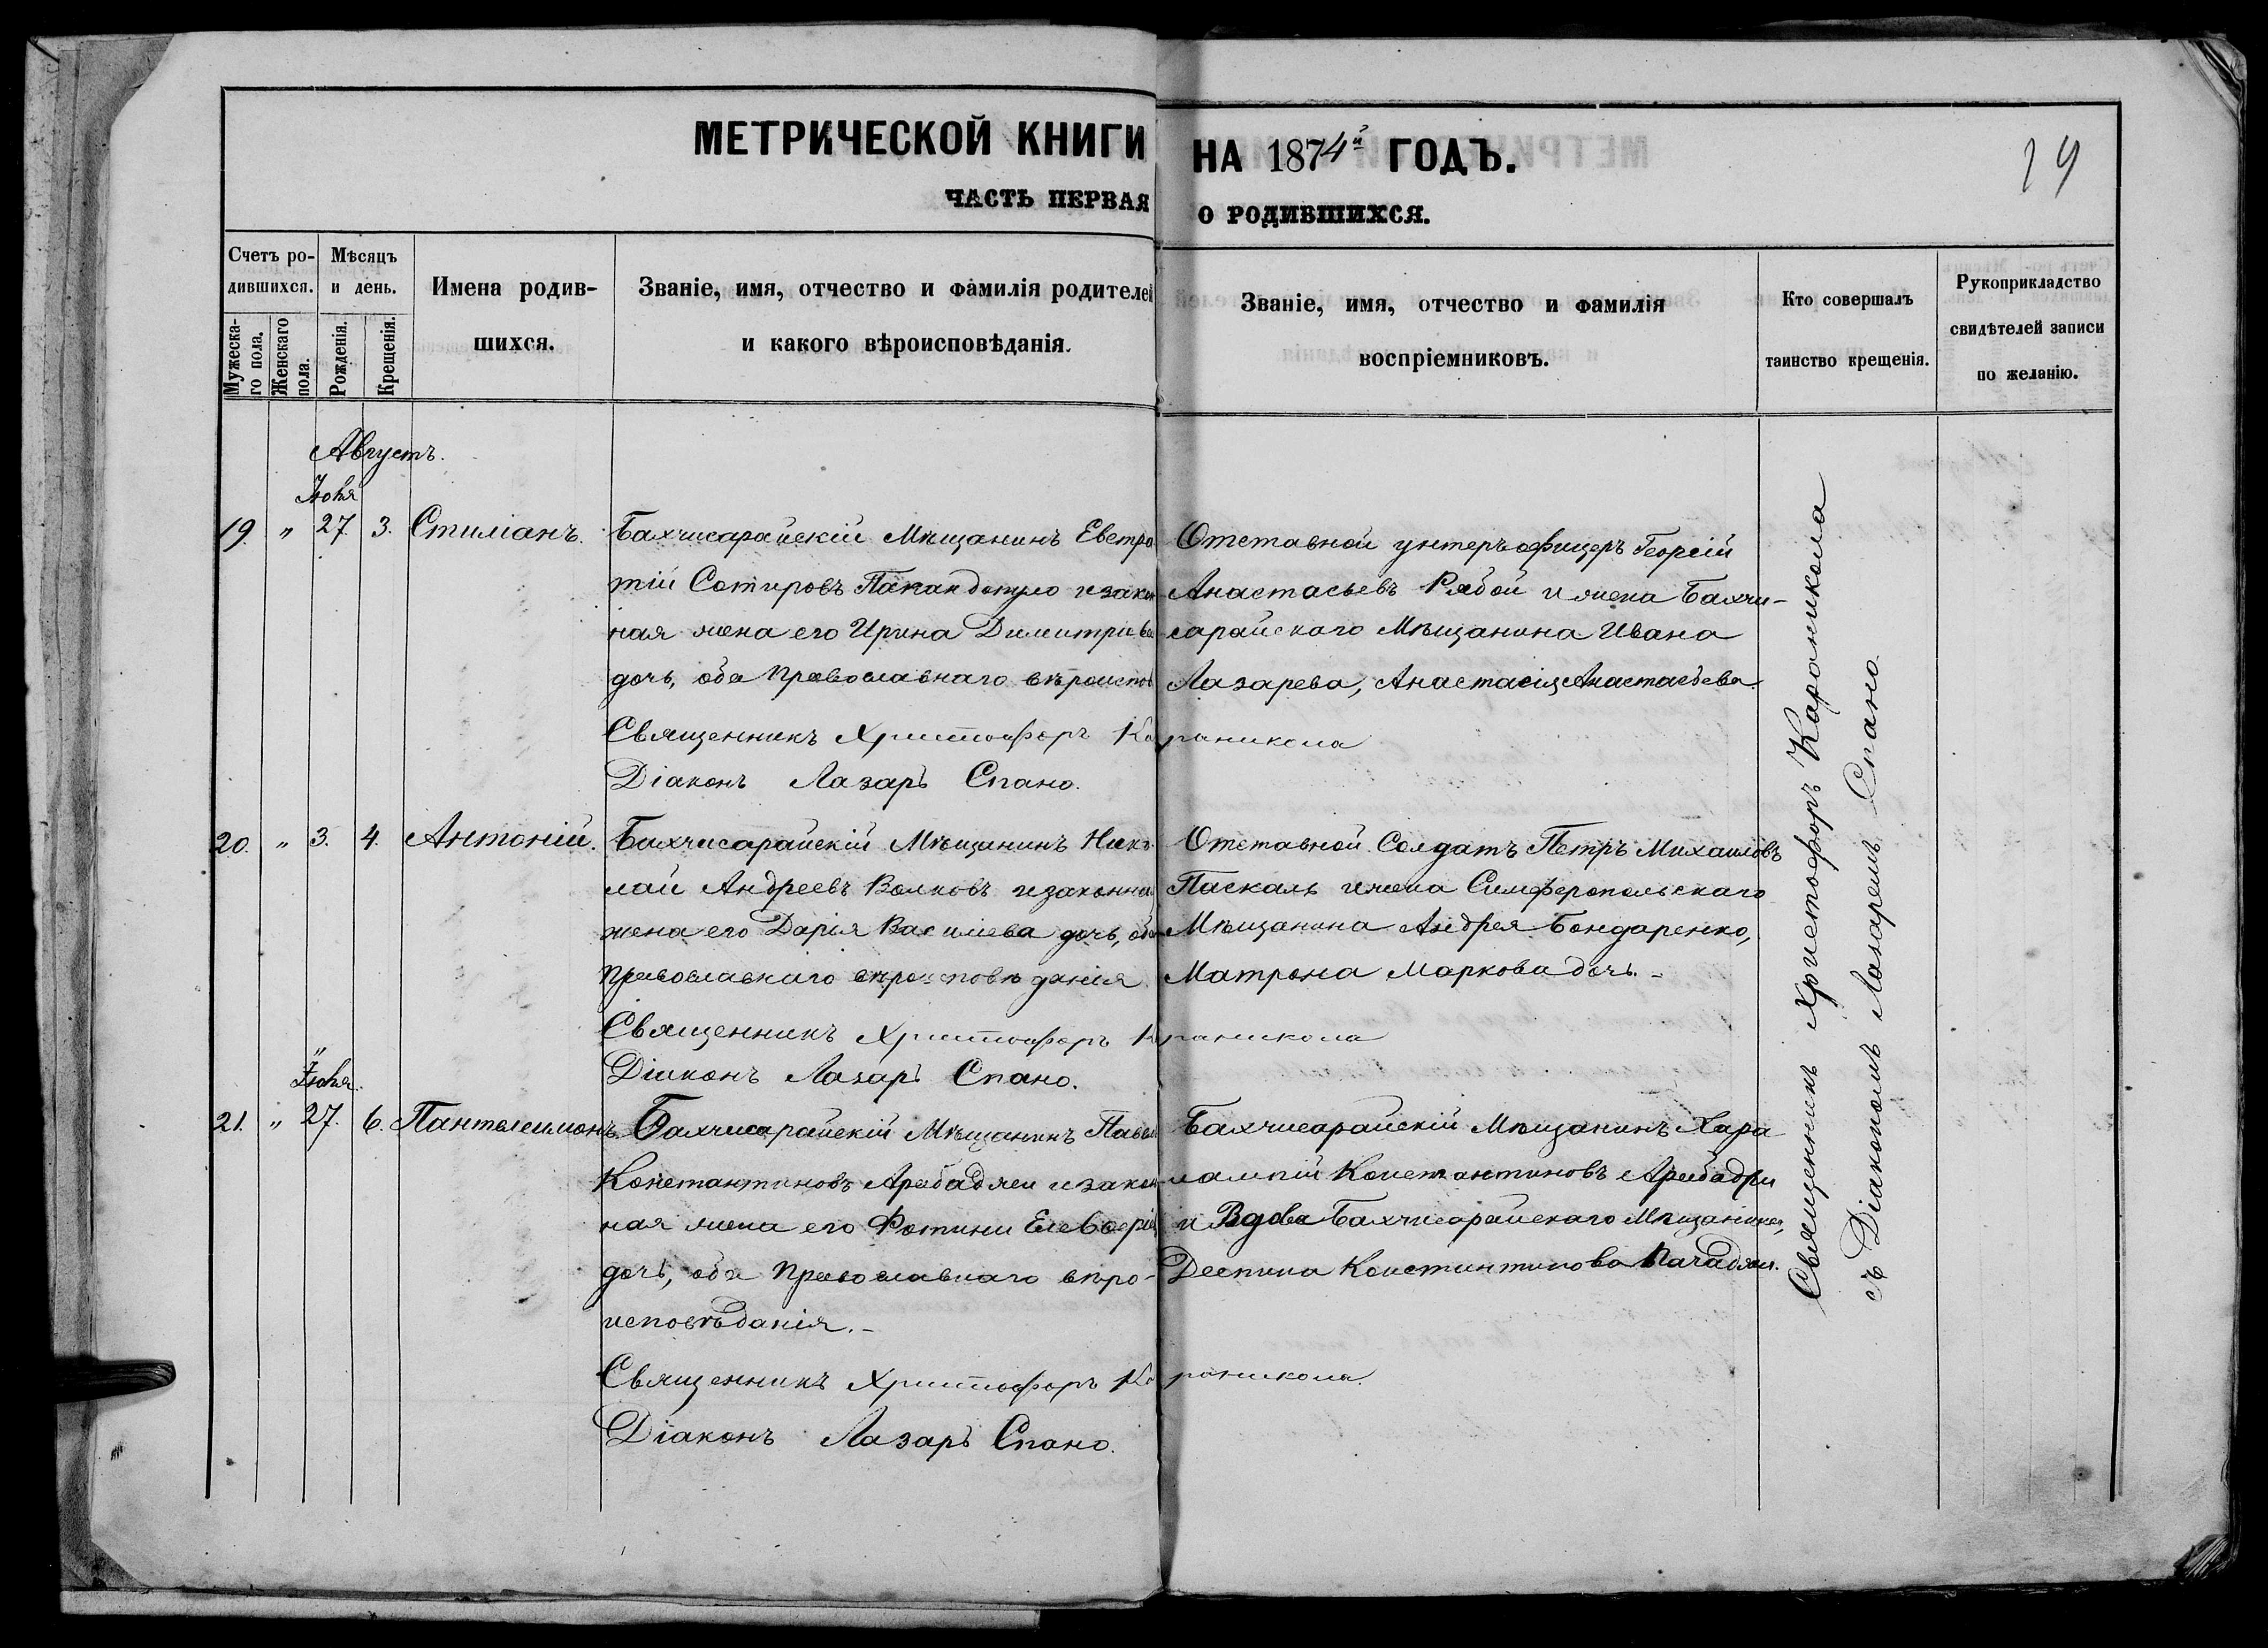 МЕТРИЧЕСКОЙ КНИГИ НА 1874й ГОДЪ.
ЧАСТЬ ПЕРВАЯ О РОДИВШИХСЯ.
Счетъ ро-
дившихся.
Мужеска-
го пола.
Женскаго
пола.
Мѣсяцъ
и день.
Рожденія.
Крещенія.
Имена родив-
шихся.
Званіе, имя, отчество и фамилія родителей
и какого вѣроисповѣданія.
Званіе, имя, отчество и фамилія
воспріемниковъ.
Кто совершалъ
таинство крещенія.
Рукоприкладство
свидѣтелей записи
по желанію.
Августъ.
19. " 27. 3. Стиліанъ.
Бахчисарайскій Мѣщанинъ Евстра
тій Сотировъ и закон
ная жена его Ирина Димитріева
дочь, оба православнаго вѣроиспов
Священникъ Христофоръ Караникола
Діаконъ Лазарь Спано.
Отставной унтеръ офицеръ Георгій
Анастасьевъ Рябой и жена Бахчи-
сарайскаго Мѣщанина Ивана
Лазарева, Анастасія Анастасьева.
20. " 3. 4. Антоній.
Бахчисарайскій Мѣщанинъ Нико
лай Андреевъ Волковъ и законна
жена его Дарія Василіева дочь, оба
православнаго вѣроисповѣданія
Священникъ Христофоръ Караникола
Діаконъ Лазарь Спано.
Отставной Солдатъ Петръ Михаиловъ
Паскаль и жена Симферопольскаго
Мѣщанина Андрея Бондаренко,
Матрона Маркова дочь.-
21. " 27. 6. Пантелеимонъ.
Бахчисарайскій Мѣщанинъ Павел
Константиновъ Арабаджи и закон
ная жена его Фотини
дочь, оба Православнаго вѣро-
исповѣданія.-
Священникъ Христофоръ Караникола
Діаконъ Лазарь Спано.
Бахчисарайскій Мѣщанинъ Хара
лампій Константиновъ
и Вдова Бахчисарайскаго Мѣщанина,
Деспина Константинова
Священникъ Христофоръ Караникола
съ Діакономъ Лазаремъ Спано.